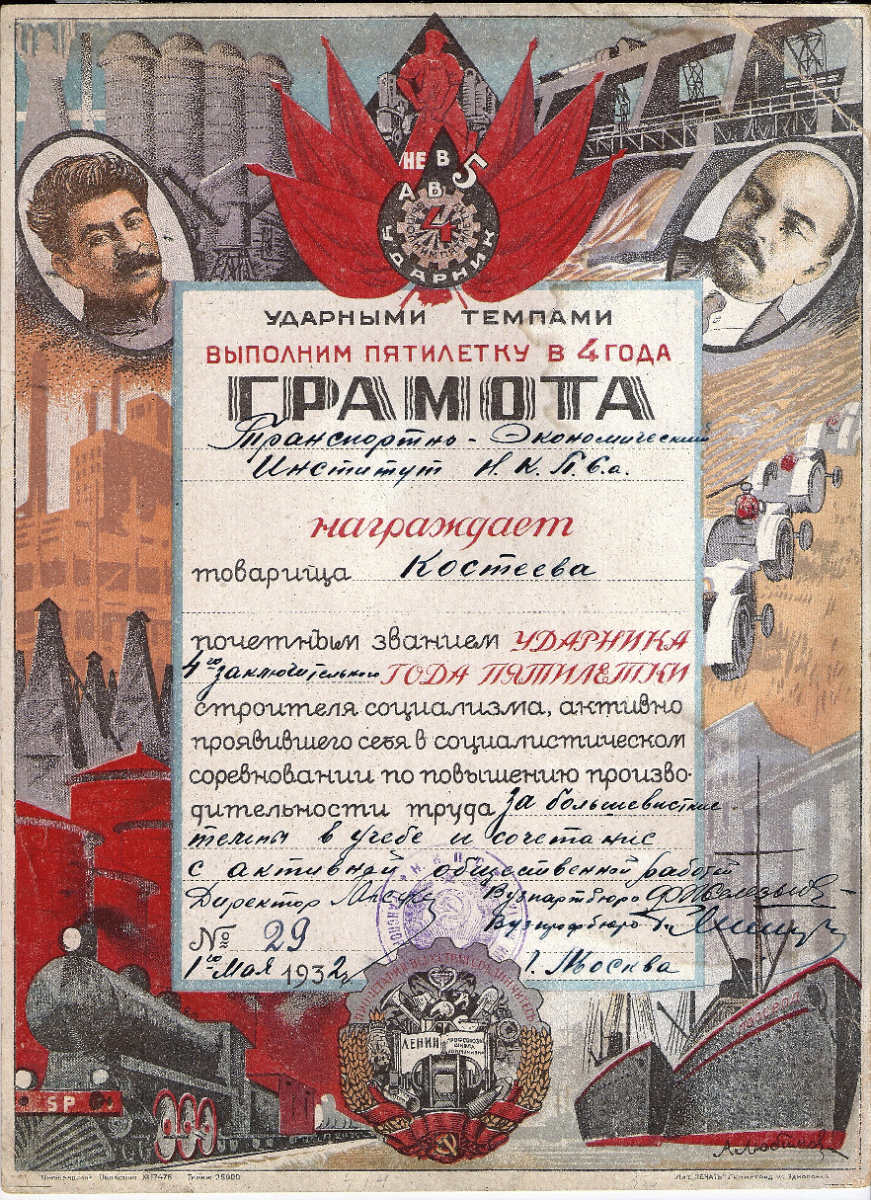 НЕ В 5
А В 4
УДАРНИК
УДАРНЫМИ ТЕМПАМИ
ВЫПОЛНИМ ПЯТИЛЕТКУ В 4 ГОДА
ГРАМОТА
Транспортно-Экономический
Институт Н.К.П.С.а.
награждает
товарища Костеева
почетным званием УДАРНИКА
4го заключительного ГОДА ПЯТИЛЕТКИ
строителя социализма, активно
проявившего себя в социалистическом
соревновании по повышению произво-
дительности труда За большевистские
темпы в учебе и сочетание
с активной общественной работой
Директор Вузпартбюро
Вузпрофбюро
№ 29
1го Мая 1932 г. Москва
ПРОЛЕТАРИИ ВСЕХ СТРАН СОЕДИНЯЙТЕСЬ
ЛЕНИН ПРОФСОЮЗЫ ШКОЛА КОММУНИЗМА
SP
Тираж 25000